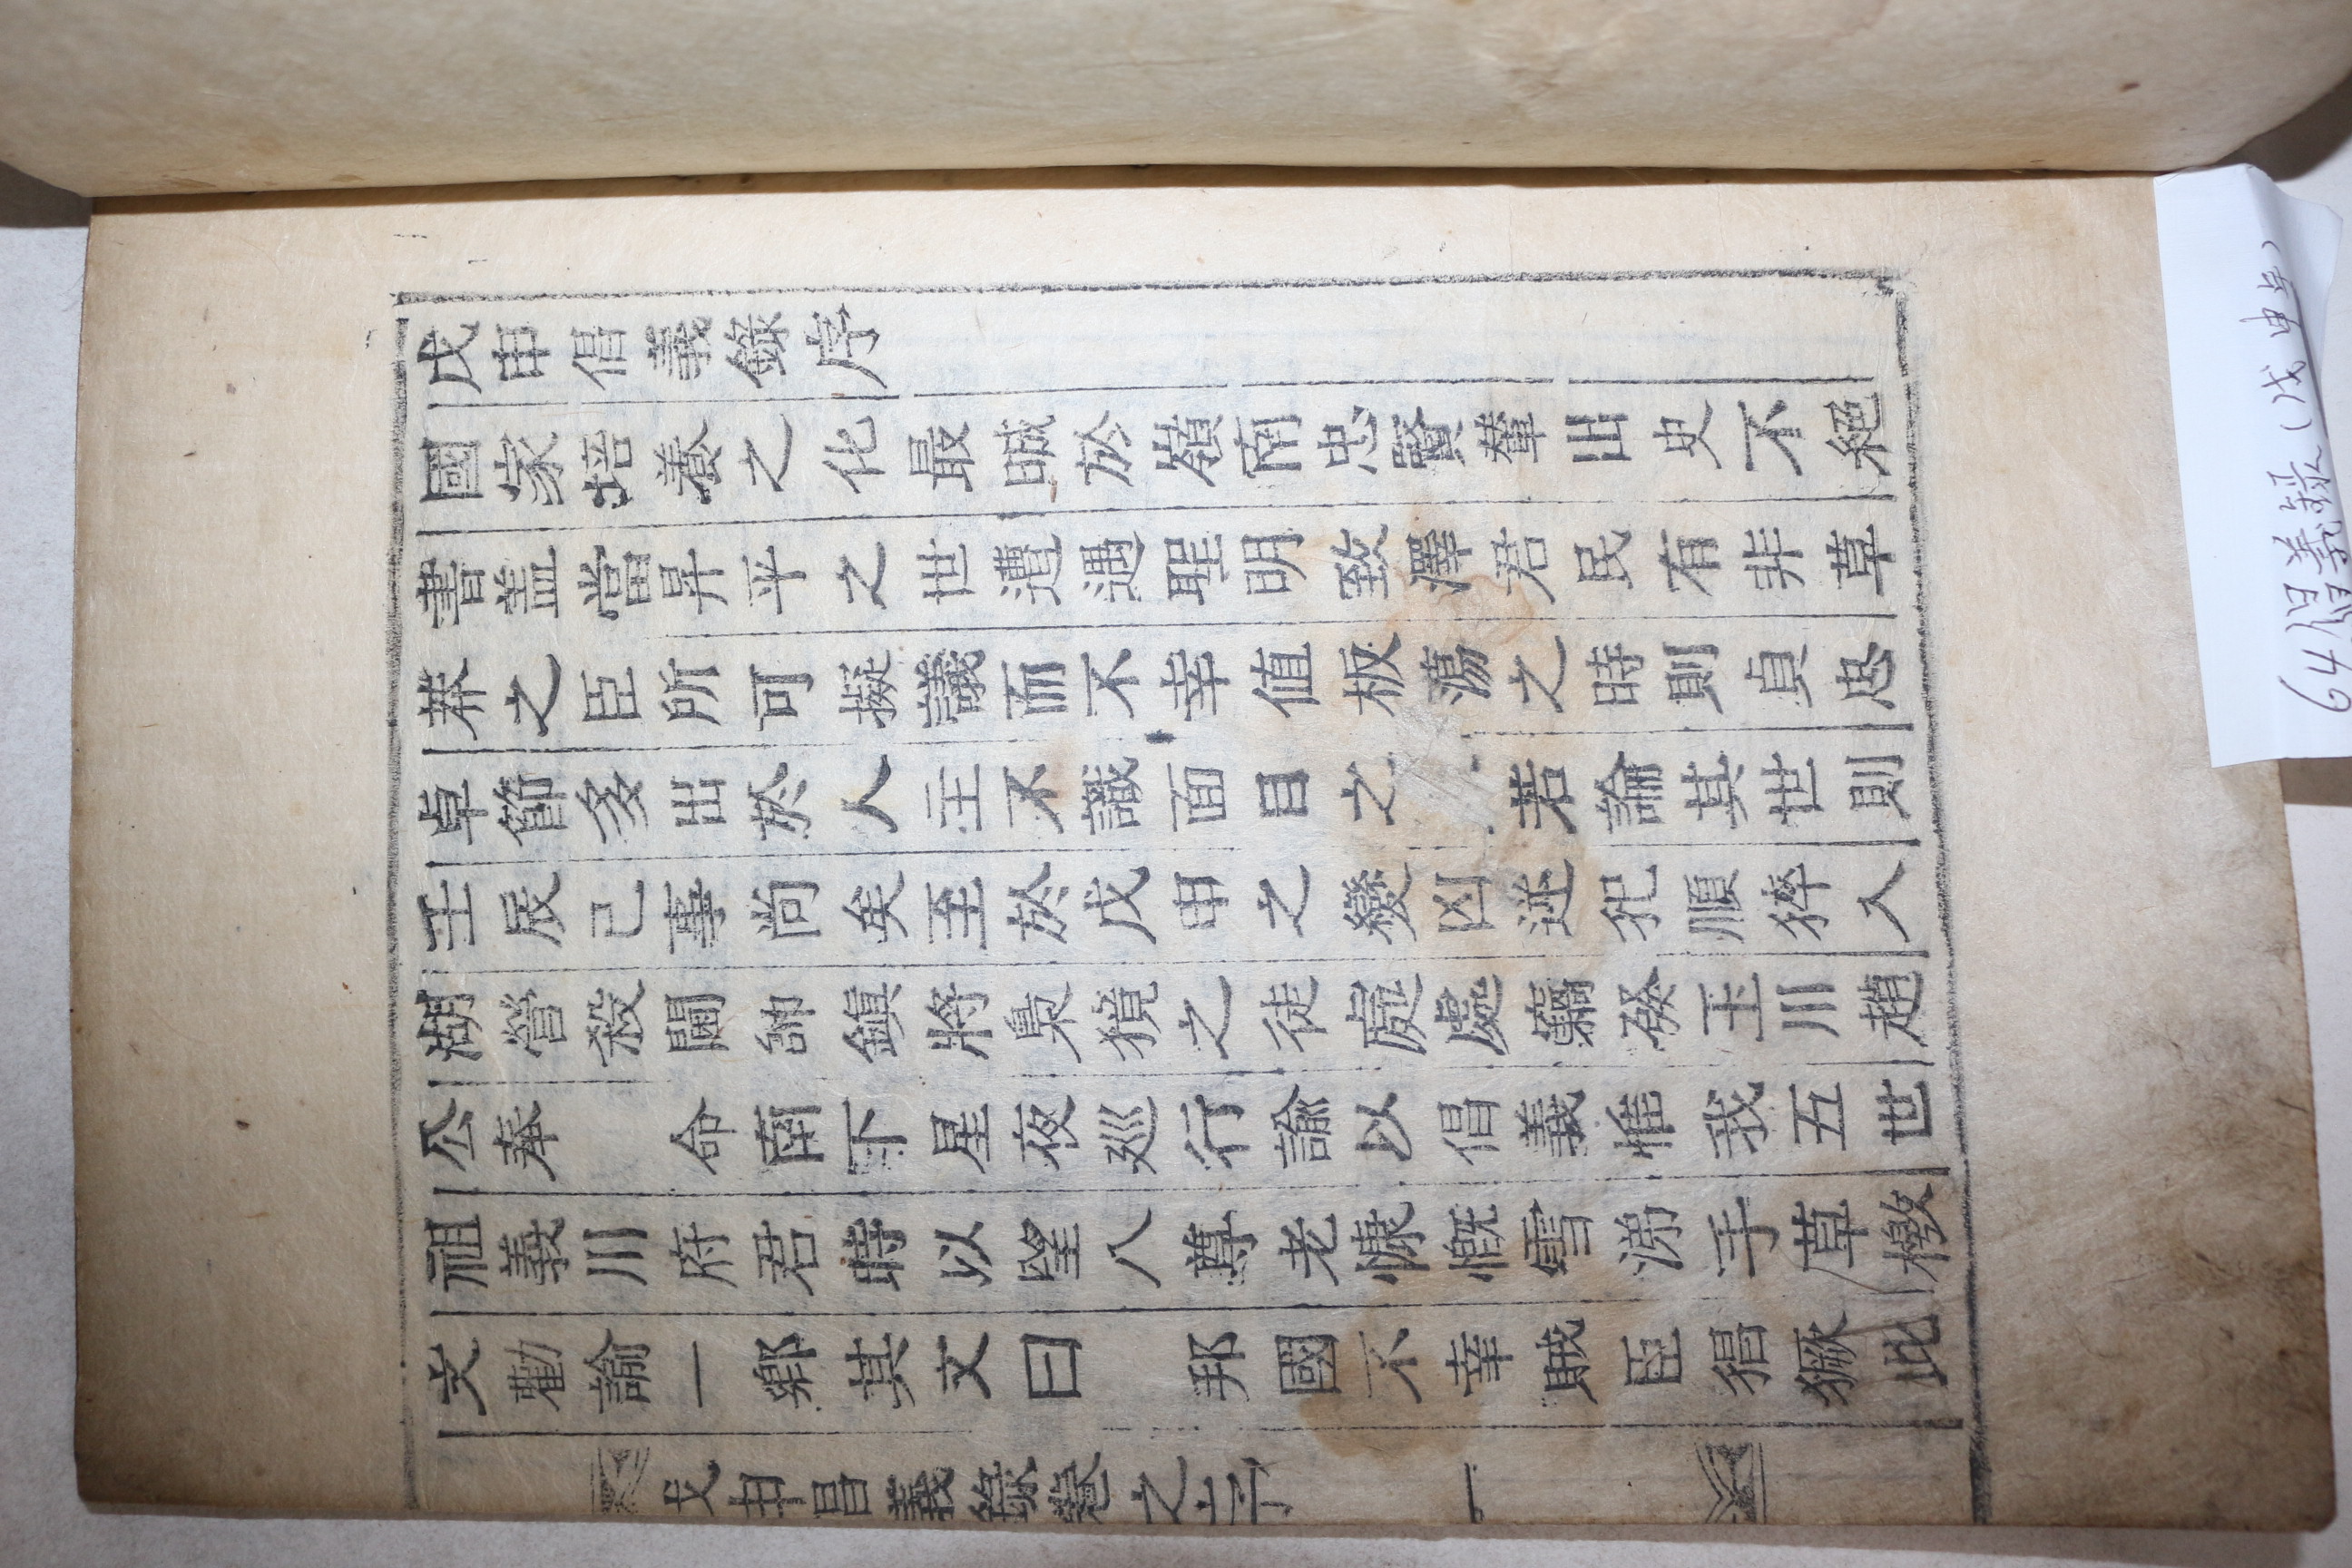 戊申倡義錄序
國家培養之化最盛於嶺南忠賢輩出史不絕
書盖當昇平之世遭遇聖明致澤君民有非草
莽之臣所可擬議而不幸值板蕩之時則貞忠
卓節多出於人主不識面目之 若論其世則
壬辰已事尚矣至於戊申之變凶逆犯順猝入
湖營殺閫帥鎭將梟獍之徒處處竊發玉川趙
公奉 命南下星夜巡行諭以倡義惟我五世
祖義川府君時以望八尊老慷慨雪涕手草檄
文勸諭一鄉其文曰 邦國不幸賊臣猖獗此
戊申昌義錄卷之三 一
649 倡義錄(戊申年)